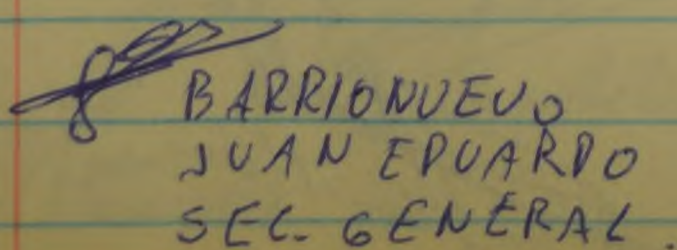 BARRIONUEVO
JUAN EDUARDO
SEC. GENERAL.